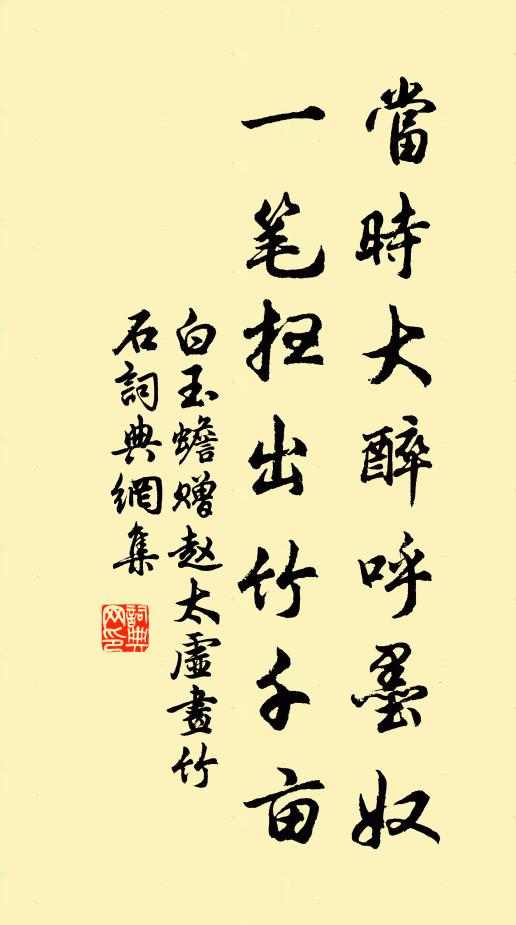 當時大醉呼墨奴
一笔扫出竹千亩
白玉蟾赠赵太虛畫竹
石詞典網集
詞典
网印